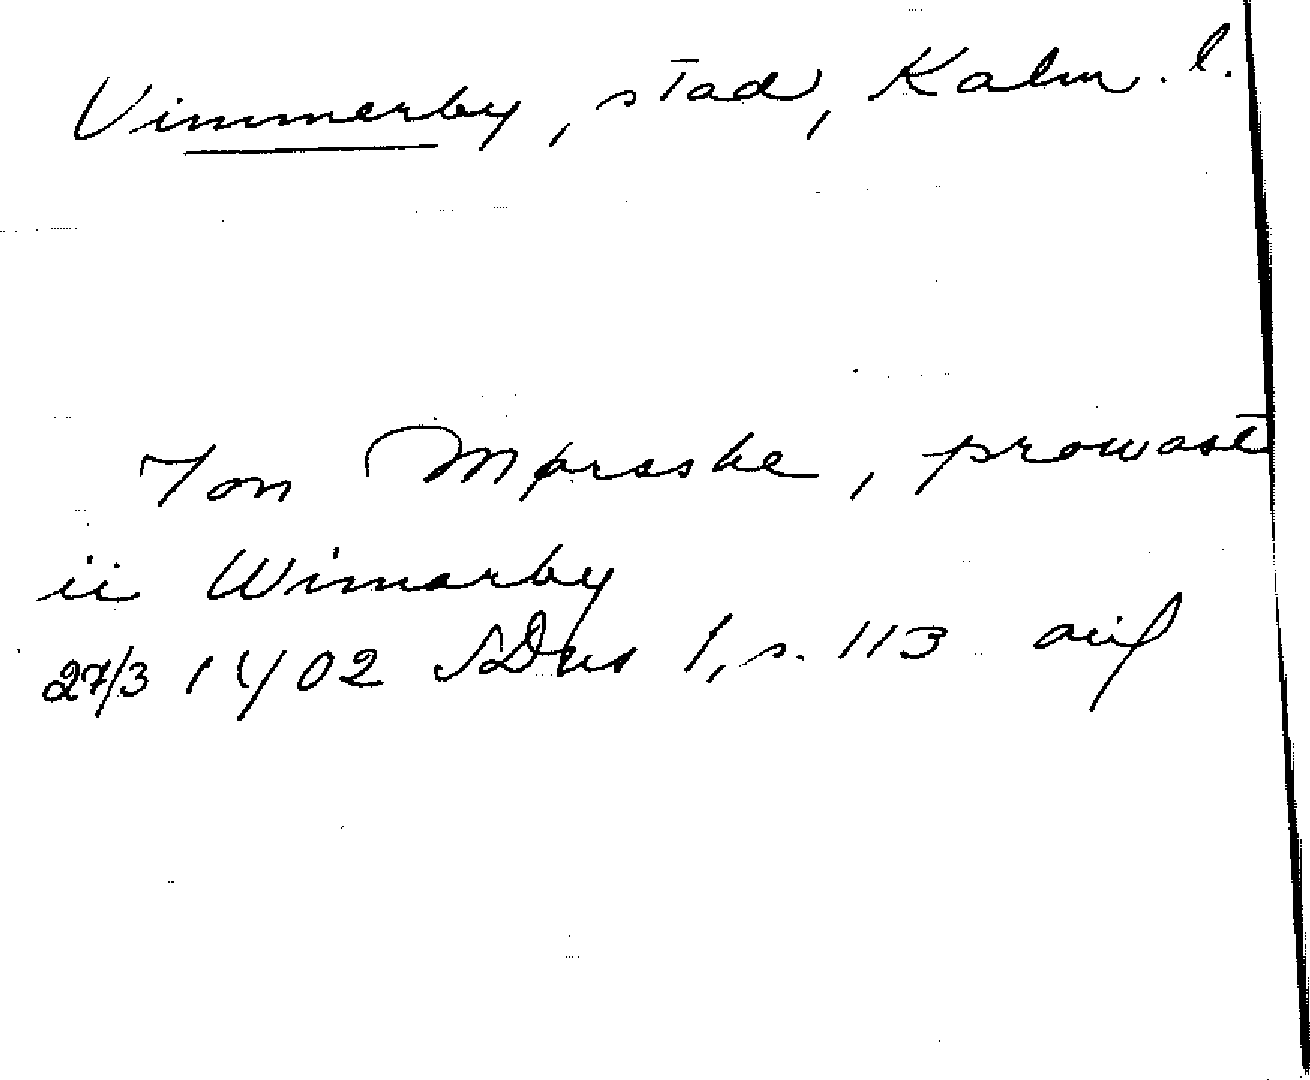 Vimmerby, stad, Kalm. l.
Jon Marsske, prowast
ii Wimarby
27/3 1402 SDns 1, s. 113 avif